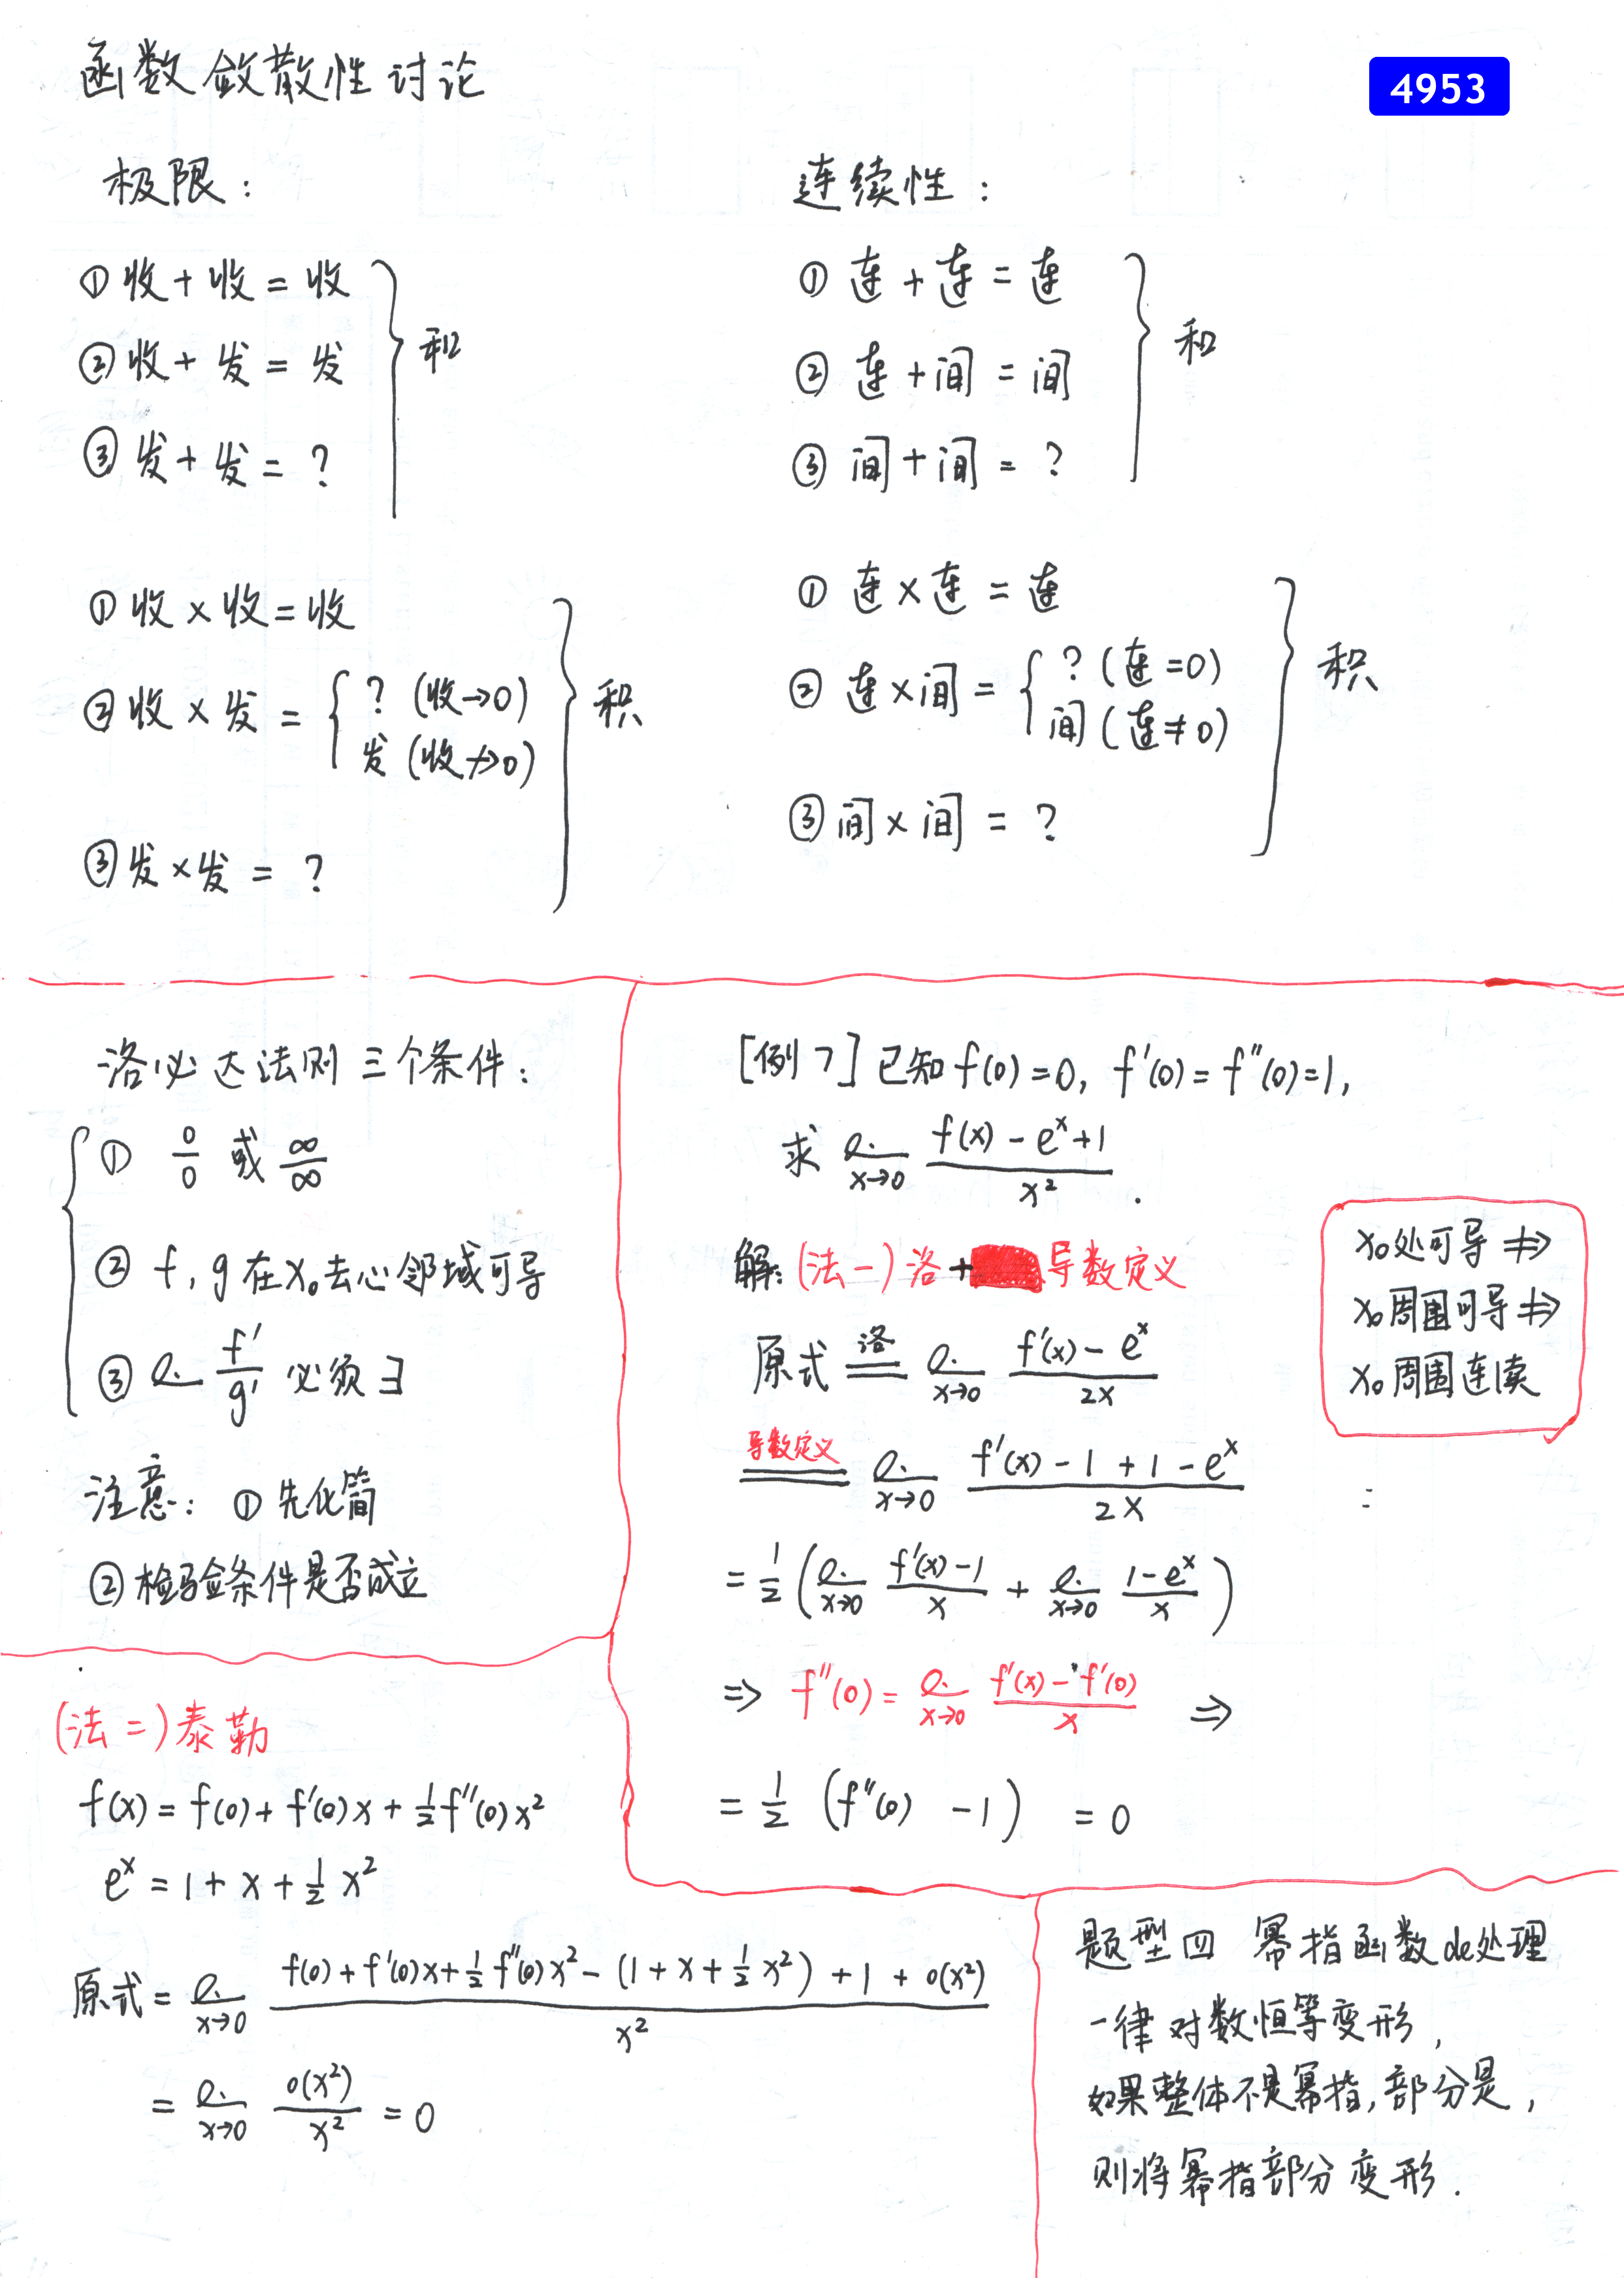 函数敛散性讨论
4953
极限:
① 收 + 收 = 收
② 收 + 发 = 发
③ 发 + 发 = ?
和
① 收 × 收 = 收
② 收 × 发 = { ? (收→0)
发 (收↛0)
③ 发 × 发 = ?
积
连续性:
① 连 + 连 = 连
② 连 + 间 = 间
③ 间 + 间 = ?
和
① 连 × 连 = 连
② 连 × 间 = { ? (连=0)
间 (连≠0)
③ 间 × 间 = ?
积
洛必达法则三个条件:
① 0/0 或 ∞/∞
② f, g 在 x₀ 去心邻域可导
③ l. f'/g' 必须 ∃
注意: ① 先化简
② 检验条件是否成立
[例7] 已知 f(0)=0, f'(0)=f''(0)=1,
求 l. x→0 (f(x) - eˣ + 1)/x² .
解: (法一) 洛 + 导数定义
原式 洛= l. x→0 (f'(x) - eˣ)/2x
导数定义= l. x→0 (f'(x) - 1 + 1 - eˣ)/2x
= 1/2 ( l. x→0 (f'(x) - 1)/x + l. x→0 (1 - eˣ)/x )
⇒ f''(0) = l. x→0 (f'(x) - f'(0))/x ⇒
= 1/2 (f''(0) - 1) = 0
x₀处可导 ⇏
x₀周围可导 ⇏
x₀周围连续
(法二) 泰勒
f(x) = f(0) + f'(0)x + 1/2 f''(0)x²
eˣ = 1 + x + 1/2 x²
原式 = l. x→0 (f(0) + f'(0)x + 1/2 f''(0)x² - (1 + x + 1/2 x²) + 1 + o(x²))/x²
= l. x→0 o(x²)/x² = 0
题型四 幂指函数de处理
一律对数恒等变形,
如果整体不是幂指,部分是,
则将幂指部分变形.